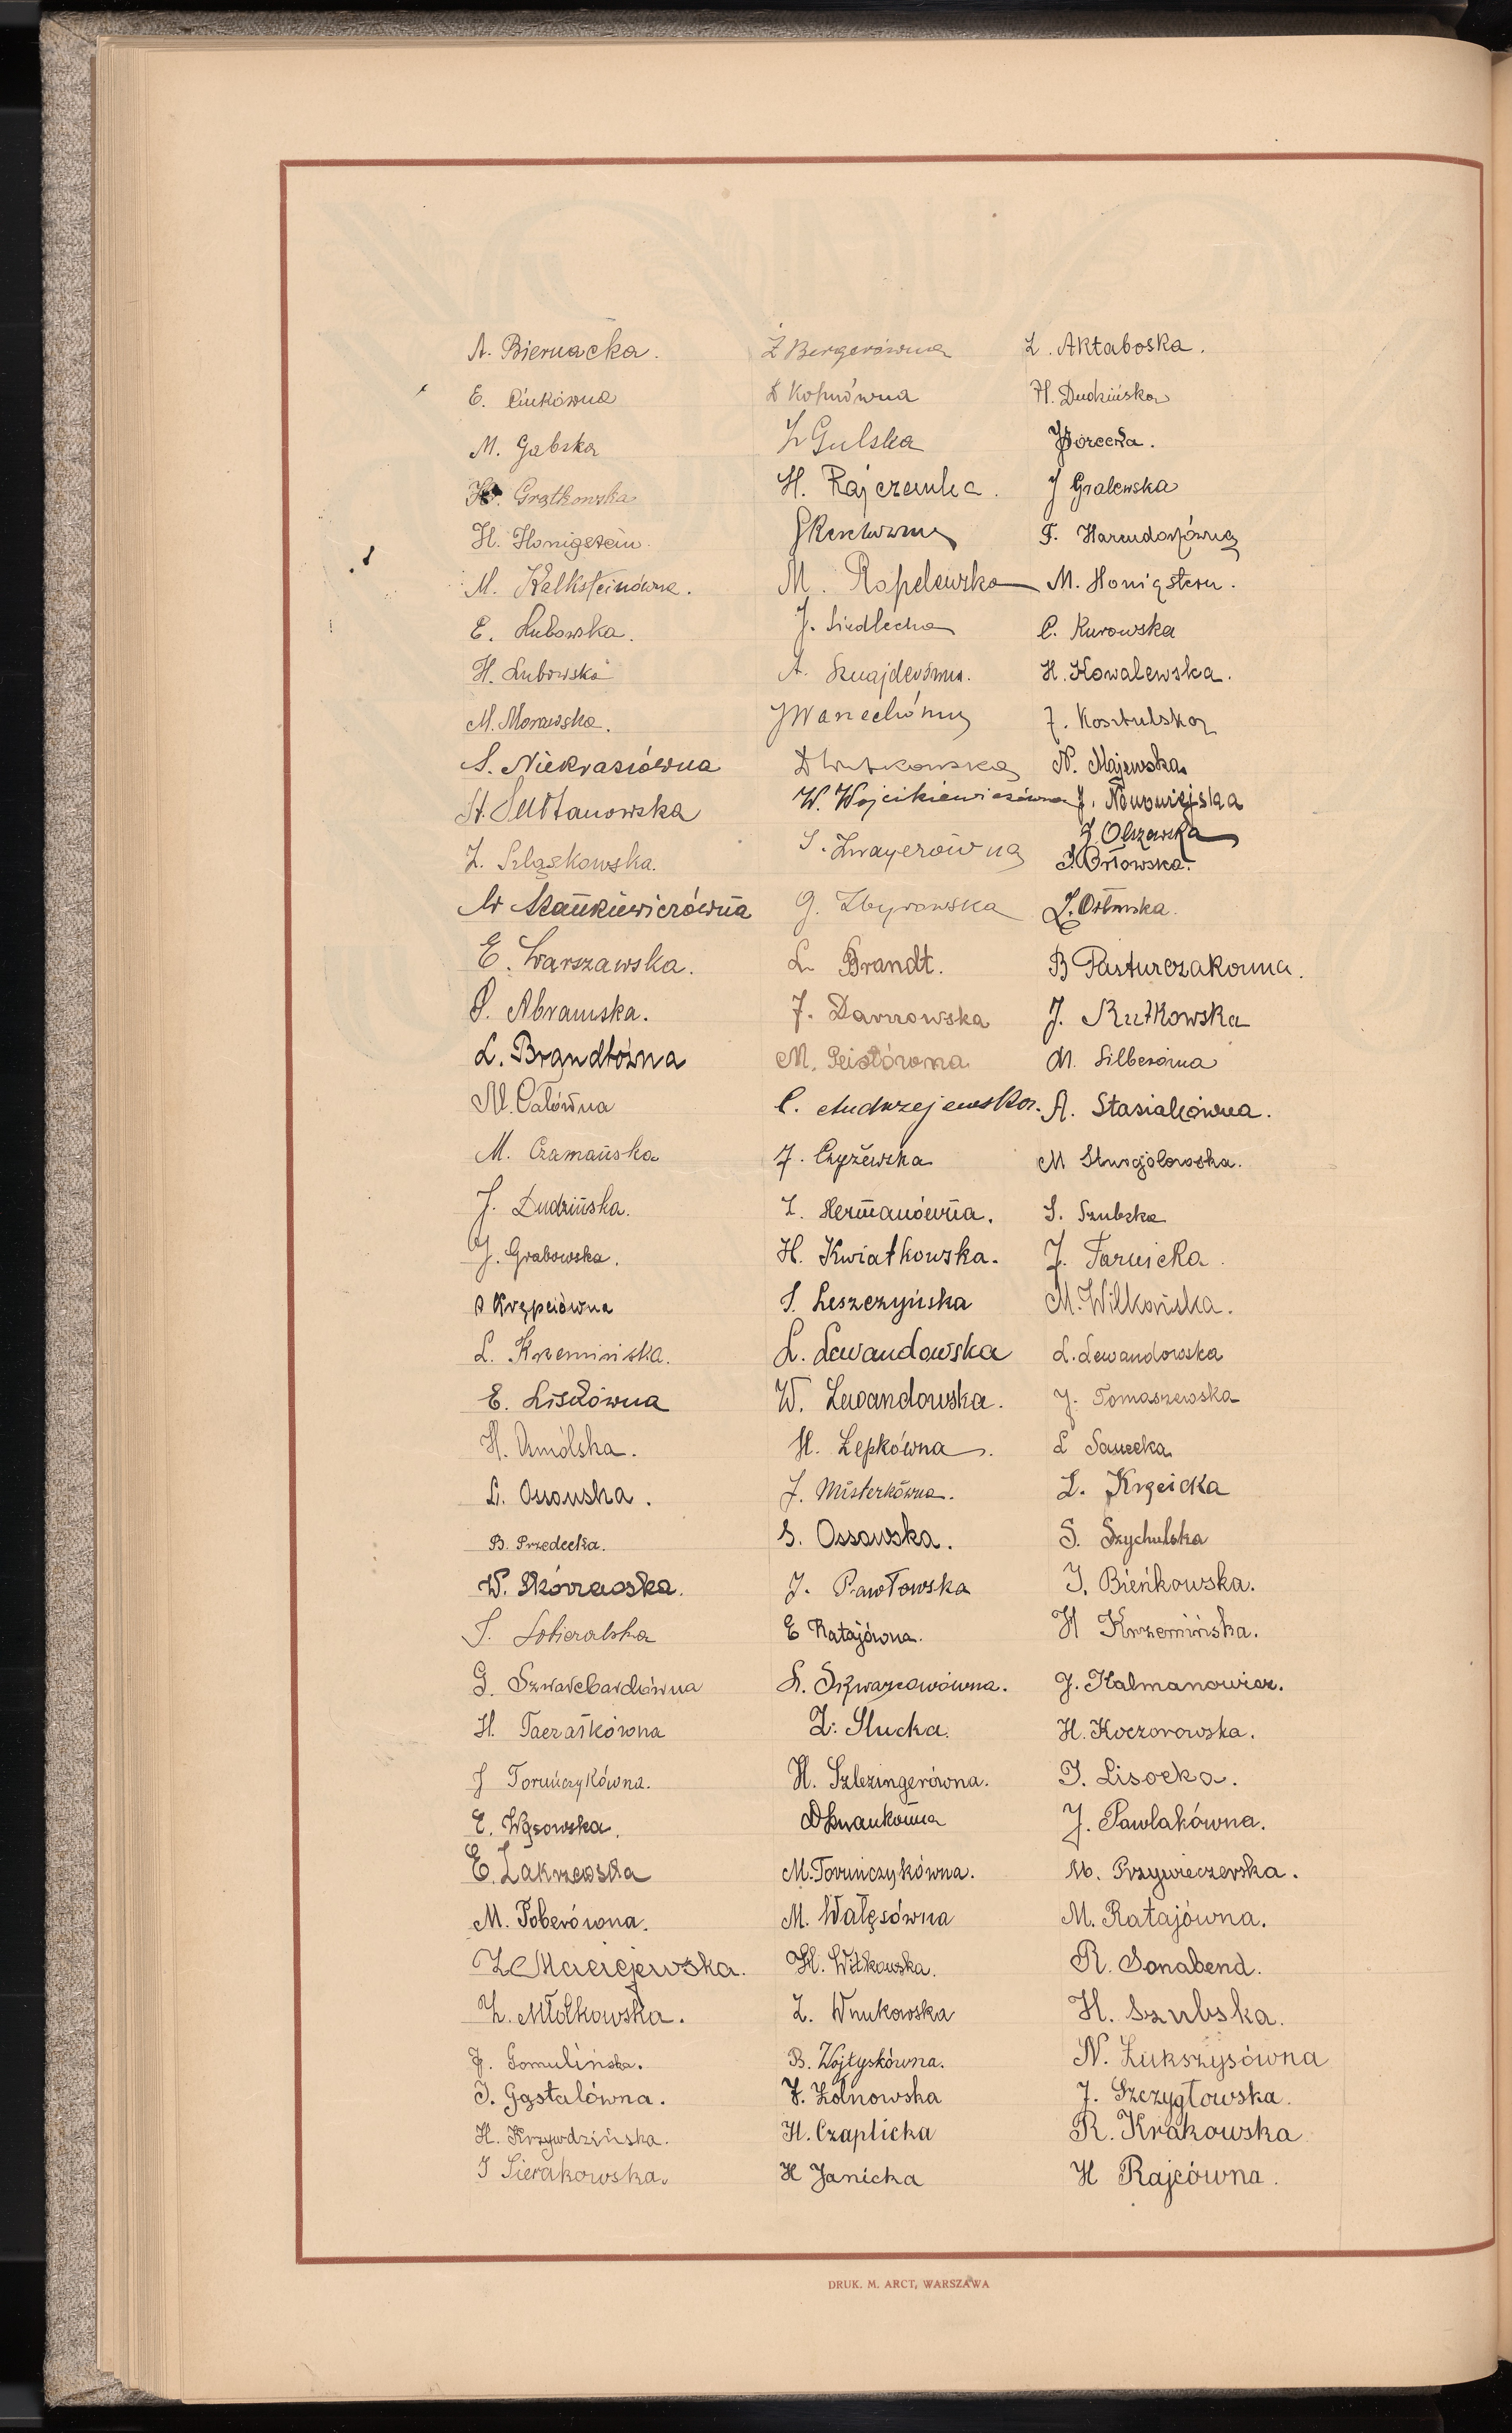 A. Biernacka.
E. Cinkówna
M. Gabska
Grątkowska
H. Honigstein.
M. Kalksteinówna.
E. Lubowska.
H. Lubowska
M. Morawska.
S. Niekrasiówna
St. Sułtanowska
Z. Szlaskowska.
Stankiewiczówna
E. Warszawska.
S. Abramska.
L. Brandtówna
M. Całówna
M. Czamańska
J. Dudzińska.
J. Grabowska.
Krępciówna
L. Krzemińska.
E. Liskówna
H.
L. Ossowska.
B. Przedecka.
W. Skórzewska.
S. Sobieralska
G. Szwarcbardówna
H. Taczałkówna
J Toruńczykówna.
E. Wąsowska.
E. Zakrzewska
M. Toberówna.
Z Maciejewska.
Z. Młotkowska.
J. Gomulińska.
J. Gąstalówna.
H. Krzywdzińska.
J Sierakowska.
Ż Bergerówna
D Kohnówna
Z Gulska
H. Rajczenka.
M. Ropelewska
J. Siedlecka
A. Sznajderówna.
W. Wojcikiewiczówna
S. Zwayerówna
G. Zbyrowska
L. Brandt.
J. Darnowska
M.
C. Andrzejewska.
J. Czyżewska
Z. Hermanówna.
H. Kwiatkowska.
S. Leszczyńska
L. Lewandowska
W. Lewandowska.
H. Lepkówna.
J. Misterkówna.
S. Ossowska.
J. Pawłowska
E Ratajówna.
S. Szwarcowówna.
Z. Słucka.
H. Szlezingerówna.
M. Toruńczykówna.
M. Wałęsówna
H. Witkowska.
Z. Wnukowska
B. Wojtyskówna.
J. Żółnowska
H. Czaplicka
H Janicka
Z. Aktaboska.
H. Dudzińska
J Gralewska
F. Harendorfówna
M. Honigstern.
C. Kurowska
H. Kowalewska.
J. Kosztulska
N. Majewska
J. Nowowiejska
Z. Olszewska
S. Orłowska.
Z. Orłowska.
B Pasturczakowna.
J. Rutkowska
M. Silberówna
A. Stasiakówna.
M
S. Szubska
J. Tarnicka.
M. Wilkońska.
L. Lewandowska
J. Tomaszewska
L Sawecka
L. Krzęicka
S. Szychulska
J. Bieńkowska.
H Krzemińska.
J. Kalmanowicz.
H. Koczorowska.
J. Lisocka.
J. Pawlakówna.
M. Przywieczerska.
M. Ratajówna.
R. Sonabend.
H. Szubska.
N. Łukszysówna
J. Szczygłowska.
R. Krakowska
H Rajcówna.
DRUK. M. ARCT, WARSZAWA